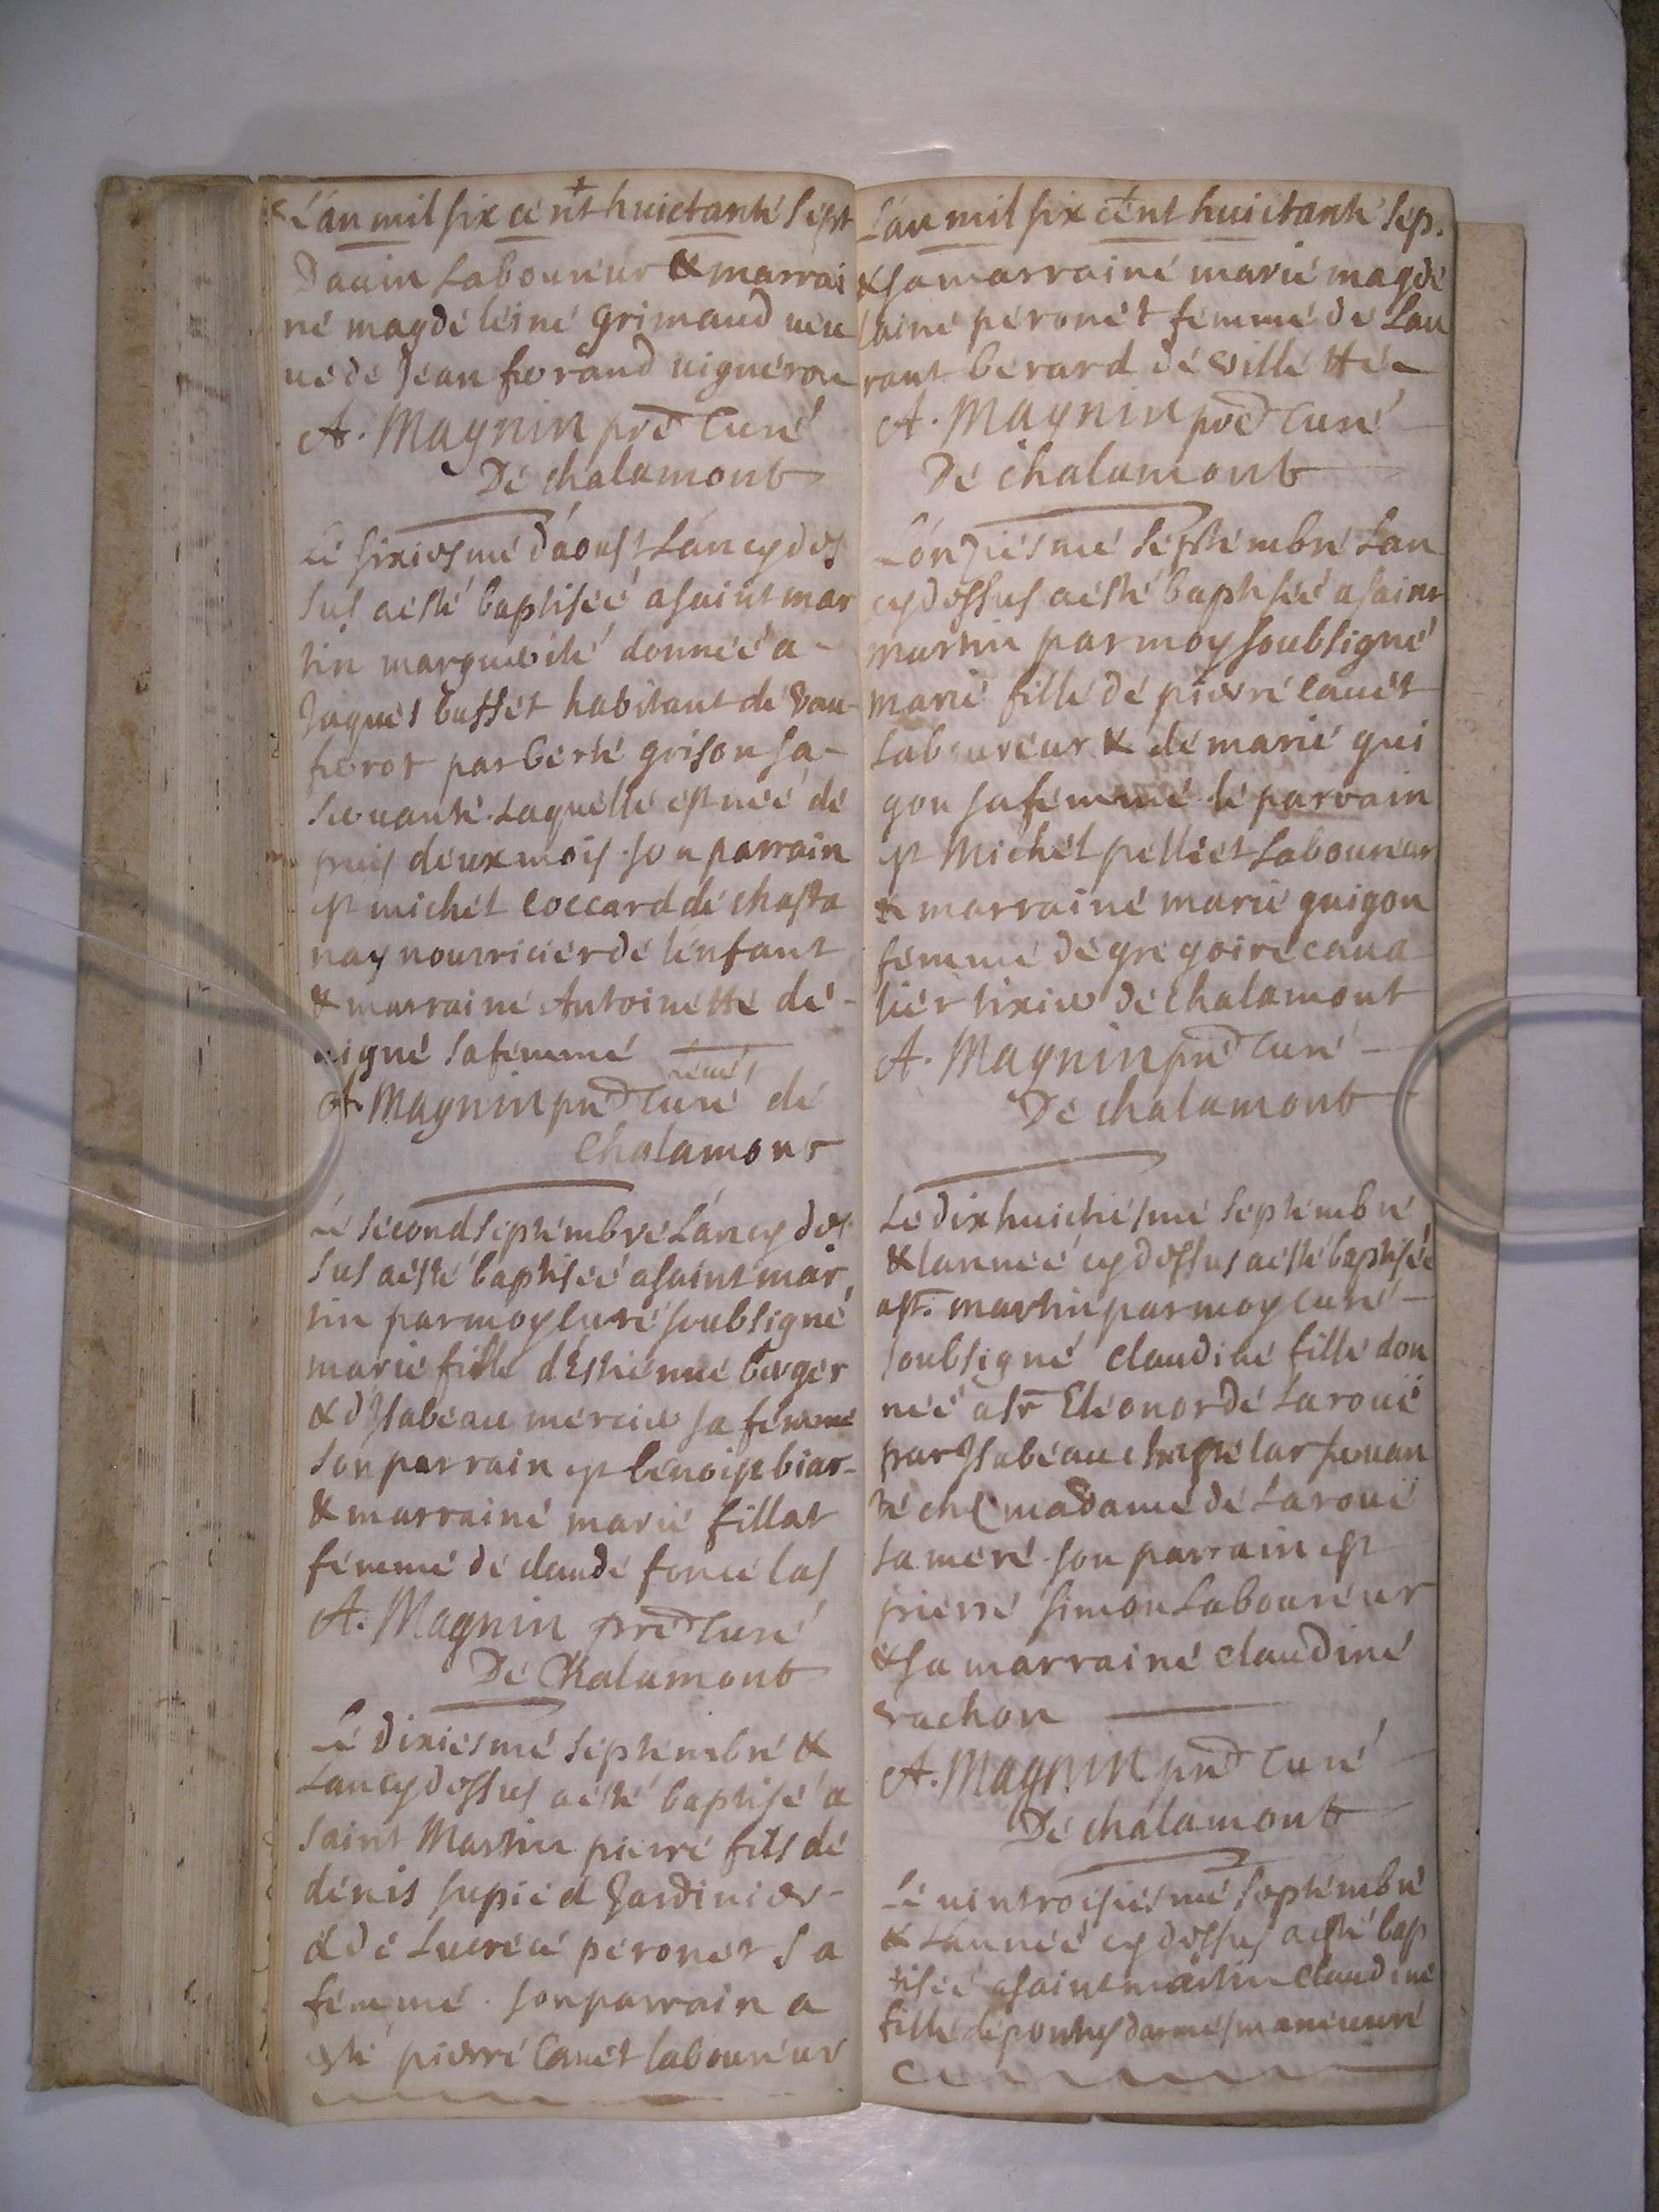 L'an mil six cent huictanté sept
Dauin Laboureur & marrai
né magdéleiné Grimaud veu
ué dé Jéan ferraud uigneron
A. Magnin pré Curé
Dé chalamont
Lé sixiesmé d'aoust L'an cy des
sus aésté baptiséé a saint mar
tin marguerité donnéé a
Jaqués bussét habitant dé
par berté grison sa
seruanté. Laquéllé est néé dé
puis déux mois. son parrain
est michél coccard dé chasta
nay nourriciér dé l'énfant
& marrainé Antoinétté dé
uigné sa fémmé
A. Magnin pré Curé dé
Chalamont
Lé sécond séptémbré L'an cy des
sus aésté baptiséé a saint mar
tin par moy curé soubsigné
marié fillé d'Estiénné bergér
& d'Isabéau mércier sa fémmé
son parrain est bénoist biar
& marrainé marié fillat
fémmé dé claudé foncélas
A. Magnin pré Curé
Dé Chalamont
Lé dixiésmé séptémbré &
L'an cy dessus aésté baptisé a
saint Martin piérré fils dé
dénis supiéd Jardinier
& dé Lucrécé péronét sa
fémmé. son parrain a
esté piérré Cauét labouréur
L'an mil six cént huictanté sép.
& sa marrainé marié magdé
lainé péronét fémmé dé Lau
rant bérard dé villétté
A. Magnin pré Curé
Dé chalamont
L'onziésmé séptémbré L'an
cy dessus aésté baptiséé a saint
martin par moy soubsigné
marié fillé dé piérré cauét
Labouréur & dé marié gui
gon sa fémmé. lé parrain
est Michél pélléét Labouréur
& marrainé marié guigon
fémmé dé grégoiré caua
liér tixier dé chalamont
A. Magnin pré Curé
Dé chalamont
Lé dix huictiésmé séptémbré
& l'annéé cy dessus aésté baptiséé
a st. martin par moy curé
soubsigné claudiné fillé don
néé a sr Eléonor dé Laroüé
par Isabéau seruan
té chéz madamé dé Laroüé
sa méré. son parrain est
piérré simon Labouréur
& sa marrainé claudiné
vachon
A. Magnin pré Curé
Dé chalamont
Lé uintroisiésmé séptémbré
& L'annéé cy dessus aésté bap
tiséé a saint martin claudiné
fillé dé